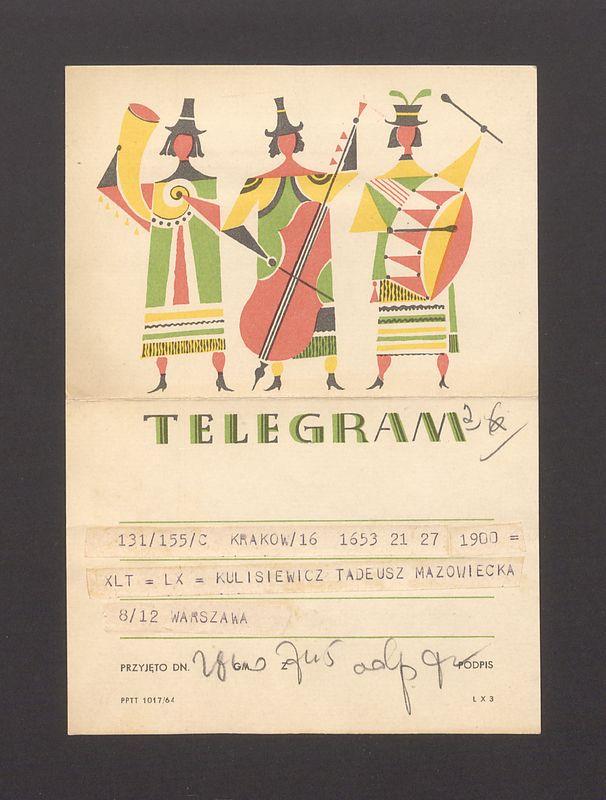 TELEGRAM
131/155/C KRAKOW/16 1653 21 27 1900 =
XLT = LX = KULISIEWICZ TADEUSZ MAZOWIECKA
8/12 WARSZAWA
PRZYJĘTO DN. GM Z odp. PODPIS
PPTT 1017/64 L X 3